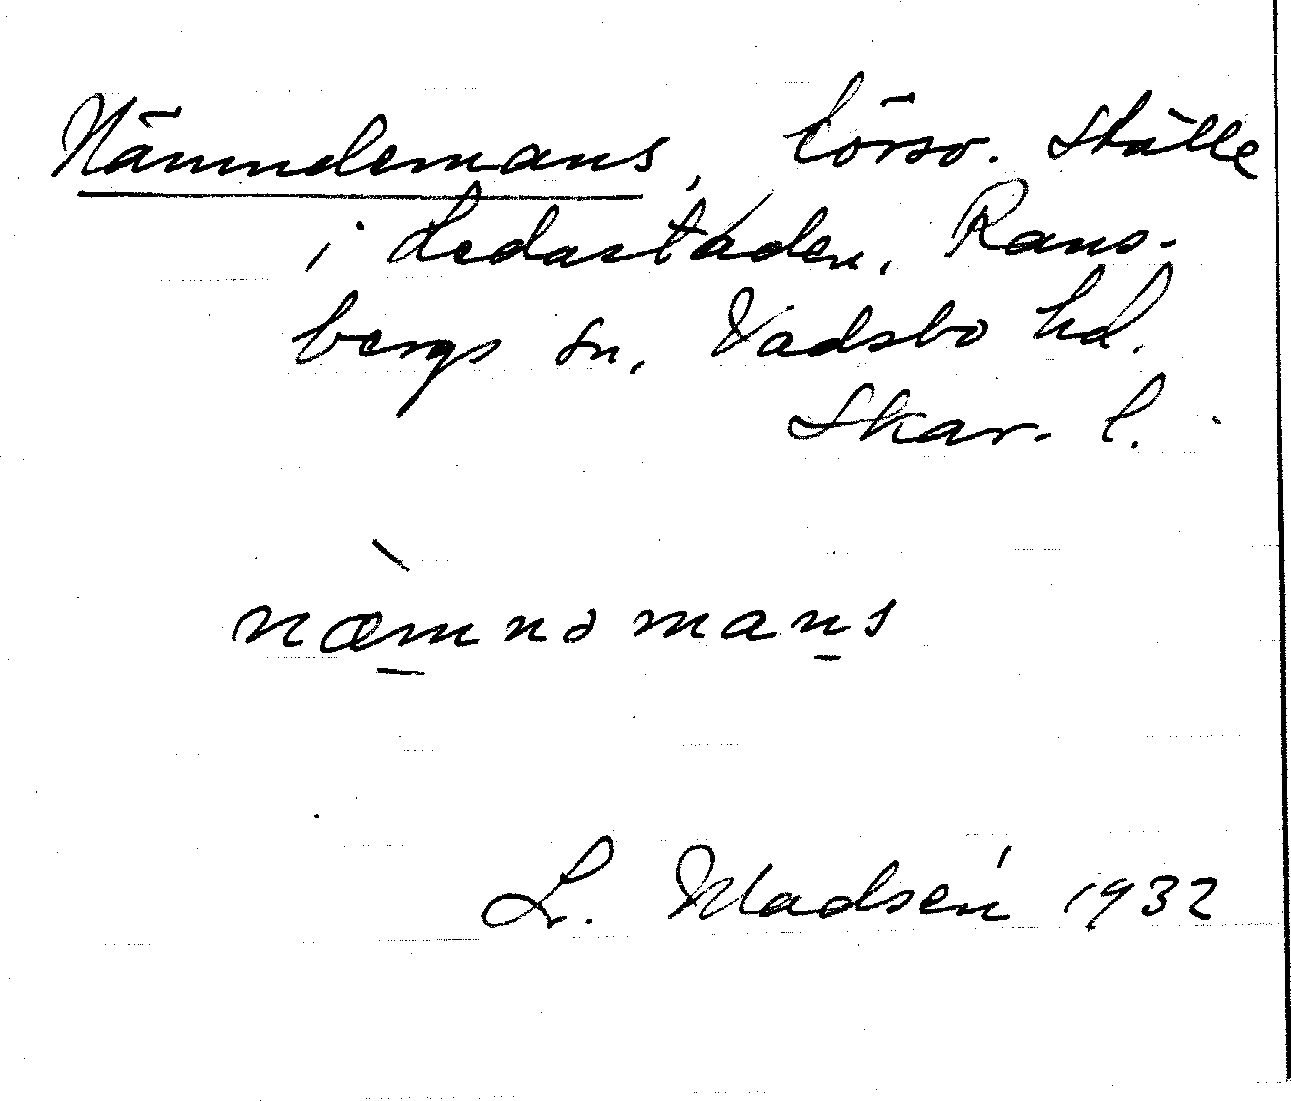 Nämndemans, försv. ställe
i Ledastaden, Rans-
bergs sn, Vadsbo hd.
Skar. l.
næ̀mnəmans
L. Madsén 1932